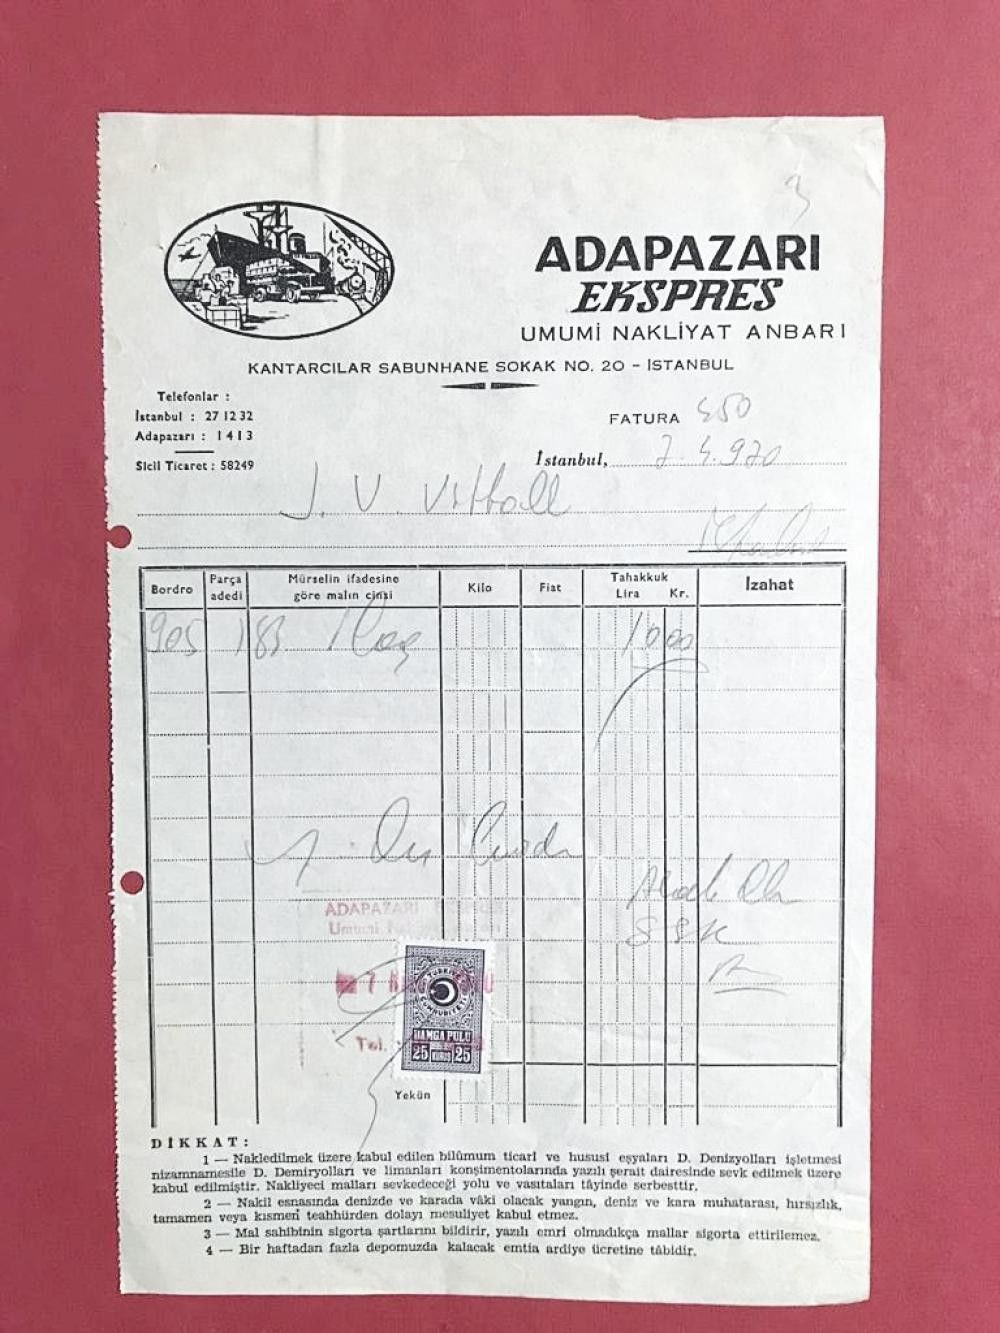 3
ADAPAZARI
EKSPRES
UMUMİ NAKLİYAT ANBARI
KANTARCILAR SABUNHANE SOKAK NO. 20 - İSTANBUL
Telefonlar :
İstanbul : 27 12 32
Adapazarı : 1413
Sicil Ticaret : 58249
FATURA 550
İstanbul, 7.5.970
J. V. Vittall
Bordro
Parça adedi
Mürselin ifadesine göre malın cinsi
Kilo
Fiat
Tahakkuk
Lira Kr.
İzahat
905 183 1000
ADAPAZARI
Umumi
7
TÜRKİYE
CUMHURİYETİ
DAMGA PULU
25 KURUŞ 25
Tel.
Yekün
DİKKAT :
1 — Nakledilmek üzere kabul edilen bilûmum ticari ve hususi eşyaları D. Denizyolları işletmesi
nizamnamesile D. Demiryolları ve limanları konşimentolarında yazılı şerait dairesinde sevk edilmek üzere
kabul edilmiştir. Nakliyeci malları sevkedeceği yolu ve vasıtaları tâyinde serbesttir.
2 — Nakil esnasında denizde ve karada vâki olacak yangın, deniz ve kara muhatarası, hırsızlık,
tamamen veya kısmen teahhürden dolayı mesuliyet kabul etmez.
3 — Mal sahibinin sigorta şartlarını bildirir, yazılı emri olmadıkça mallar sigorta ettirilemez.
4 — Bir haftadan fazla depomuzda kalacak emtia ardiye ücretine tâbidir.